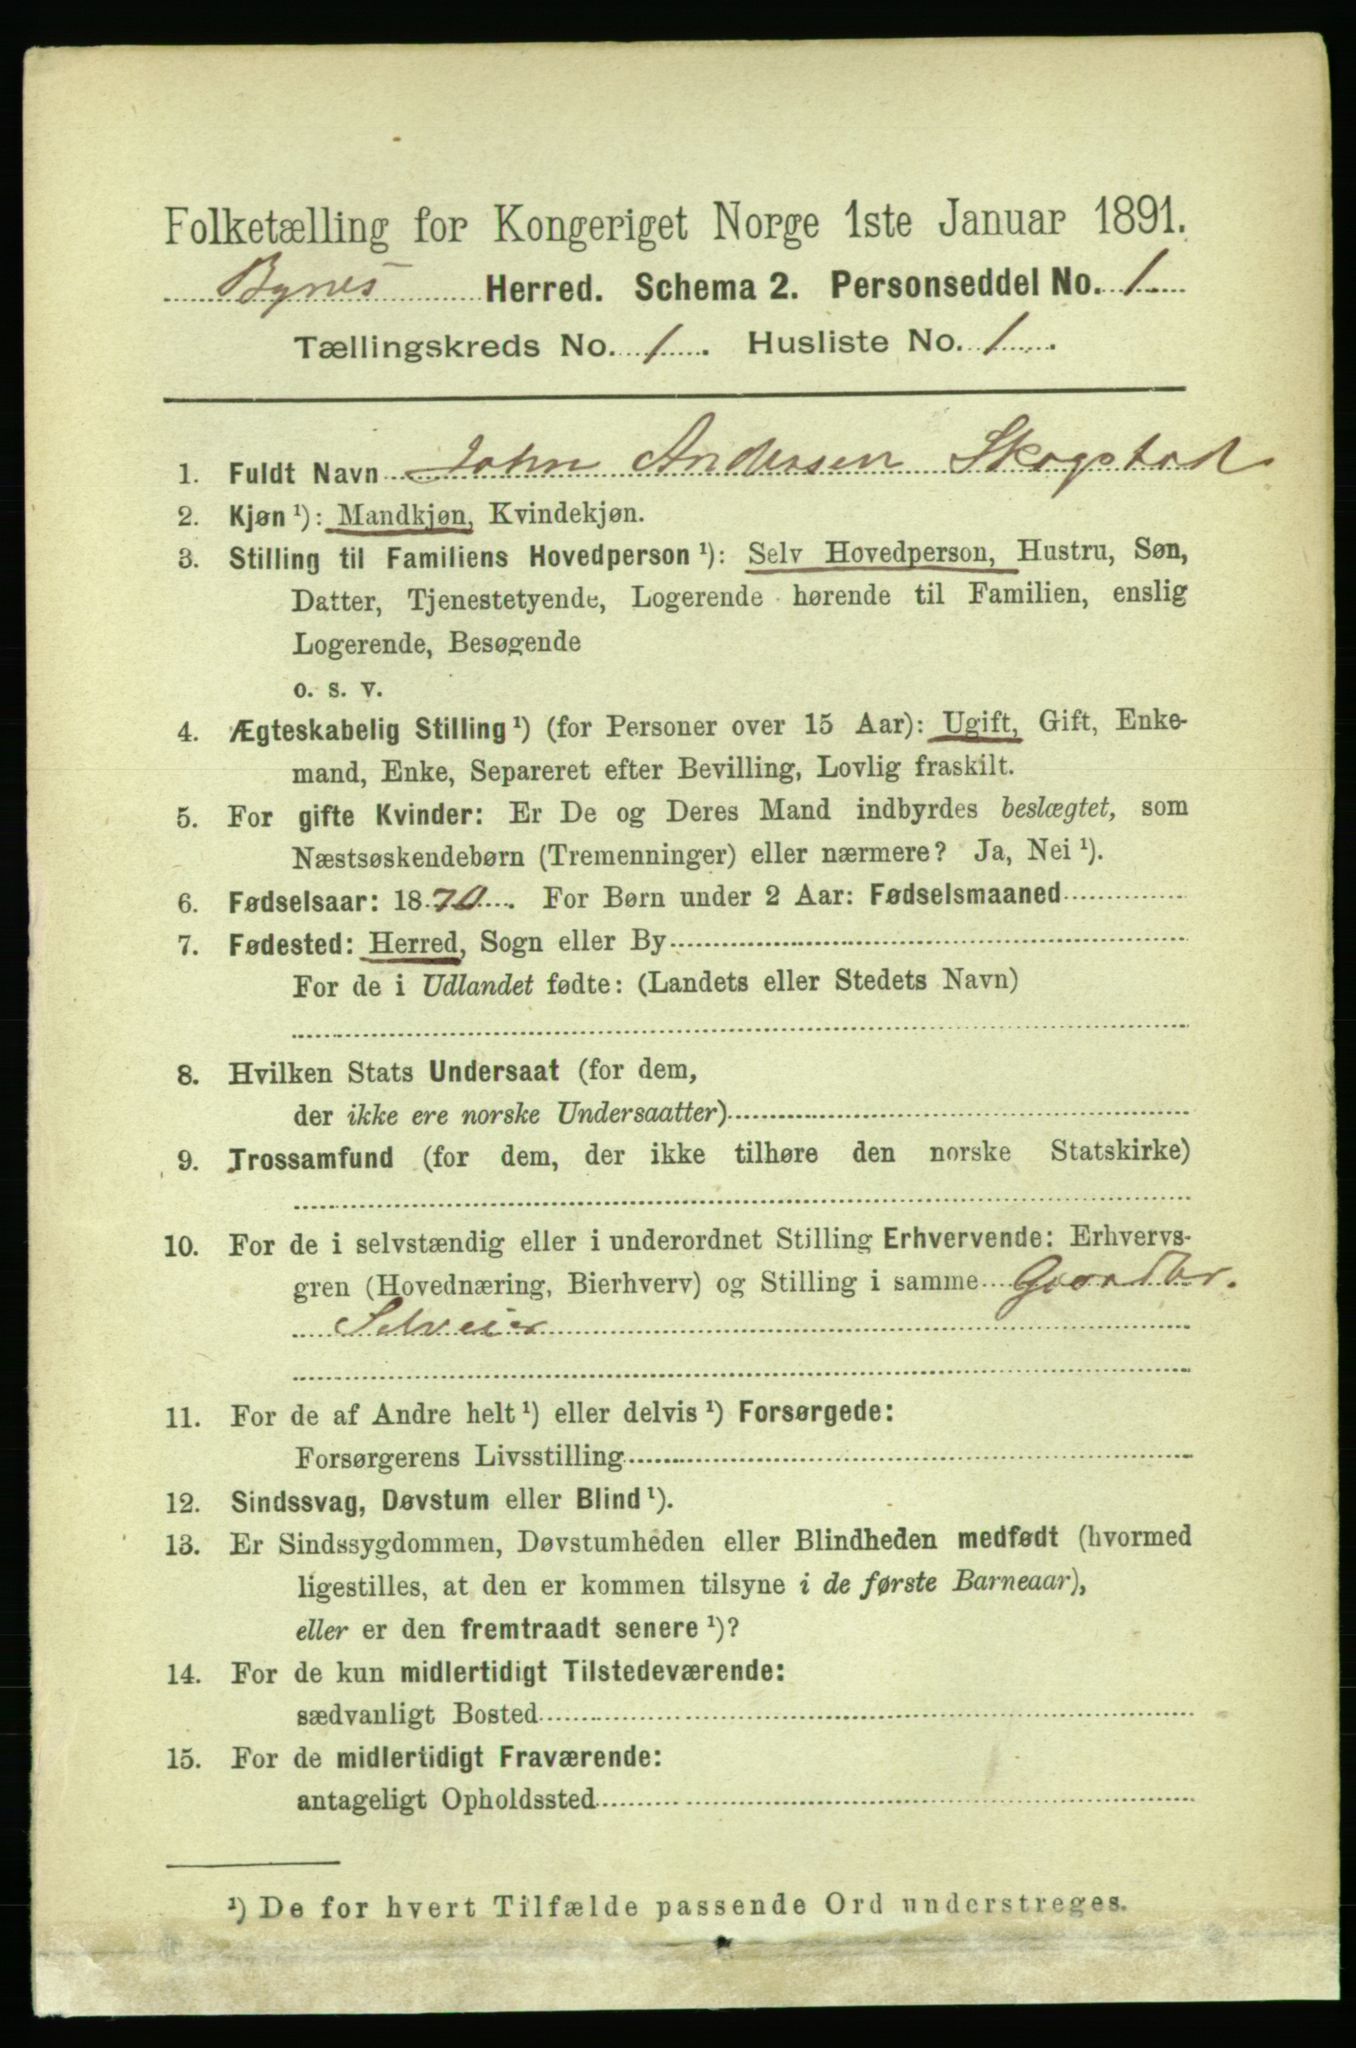 Folketælling for Kongeriget Norge 1ste Januar 1891.
Bynes Herred. Schema 2. Personseddel No. 1
Tællingskreds No. 1. Husliste No. 1.
1. Fuldt Navn John Andersen Skogstad
2. Kjøn ¹): Mandkjøn, Kvindekjøn.
3. Stilling til Familiens Hovedperson ¹): Selv Hovedperson, Hustru, Søn,
Datter, Tjenestetyende, Logerende hørende til Familien, enslig
Logerende, Besøgende
o. s. v.
4. Ægteskabelig Stilling ¹) (for Personer over 15 Aar): Ugift, Gift, Enke-
mand, Enke, Separeret efter Bevilling, Lovlig fraskilt.
5. For gifte Kvinder: Er De og Deres Mand indbyrdes beslægtet, som
Næstsøskendebørn (Tremenninger) eller nærmere? Ja, Nei ¹).
6. Fødselsaar: 1870. For Børn under 2 Aar: Fødselsmaaned
7. Fødested: Herred, Sogn eller By
For de i Udlandet fødte: (Landets eller Stedets Navn)
8. Hvilken Stats Undersaat (for dem,
der ikke ere norske Undersaatter)
9. Trossamfund (for dem, der ikke tilhøre den norske Statskirke)
10. For de i selvstændig eller i underordnet Stilling Erhvervende: Erhvervs-
gren (Hovednæring, Bierhverv) og Stilling i samme Gaardbr.
Selveier
11. For de af Andre helt ¹) eller delvis ¹) Forsørgede:
Forsørgerens Livsstilling
12. Sindssvag, Døvstum eller Blind ¹).
13. Er Sindssygdommen, Døvstumheden eller Blindheden medfødt (hvormed
ligestilles, at den er kommen tilsyne i de første Barneaar),
eller er den fremtraadt senere ¹)?
14. For de kun midlertidigt Tilstedeværende:
sædvanligt Bosted
15. For de midlertidigt Fraværende:
antageligt Opholdssted
¹) De for hvert Tilfælde passende Ord understreges.